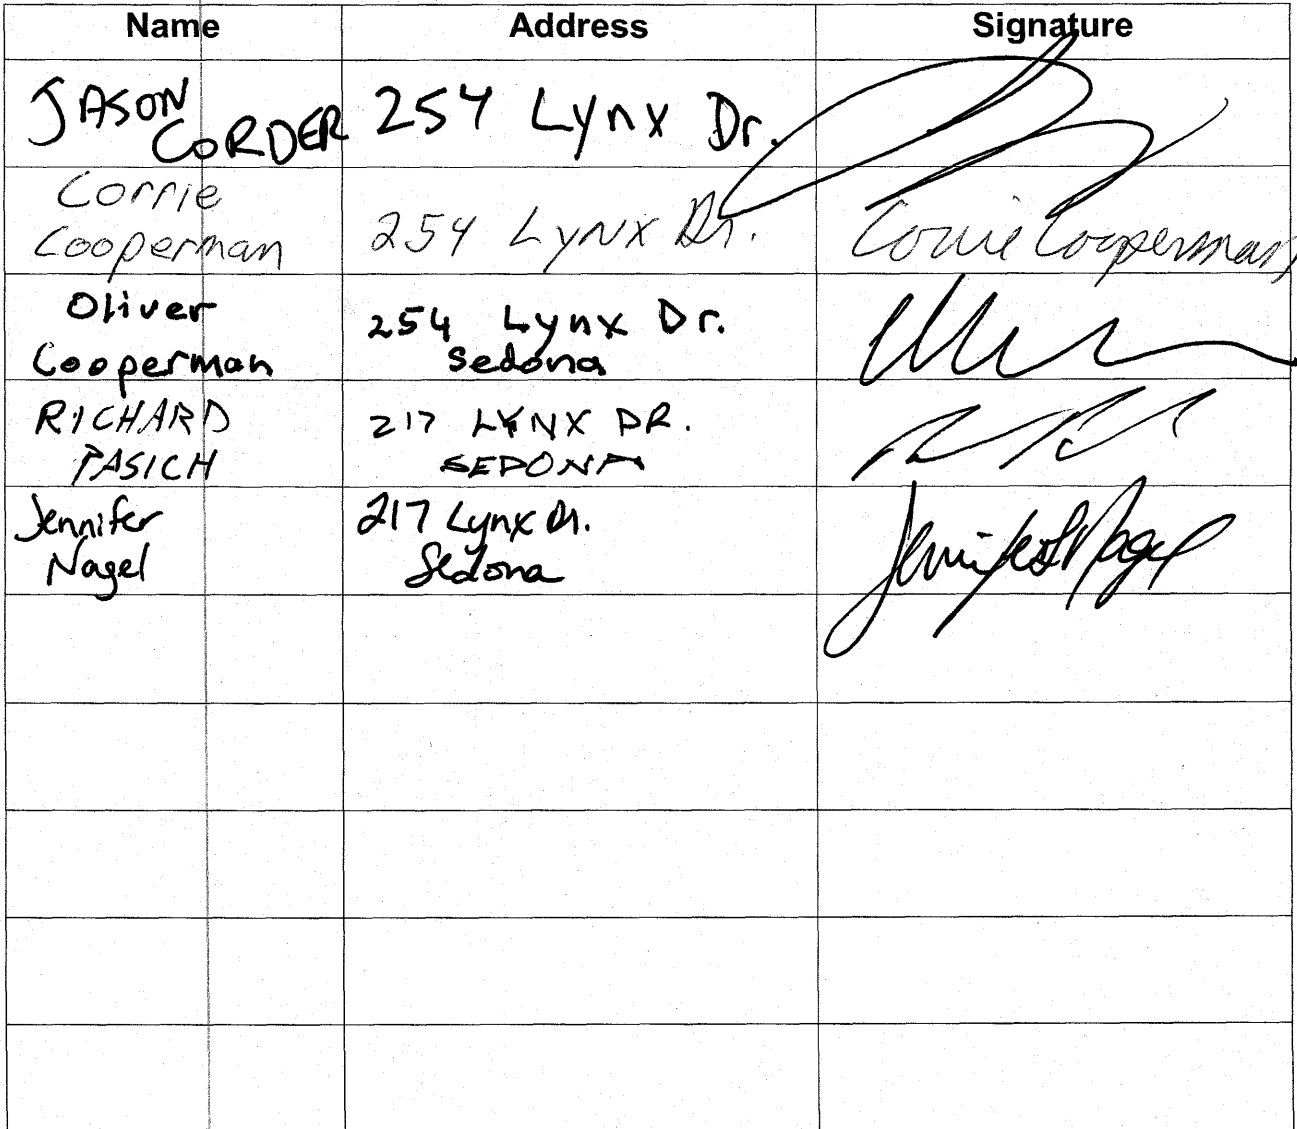 Name Address Signature
JASON CORDER 254 Lynx Dr.
Corrie
Cooperman 254 Lynx Dr. Corrie Cooperman
Oliver
Cooperman 254 Lynx Dr.
Sedona
RICHARD
PASICH 217 LYNX DR.
SEDONA
Jennifer
Nagel 217 Lynx Dr.
Sedona Jennifer L Nagel